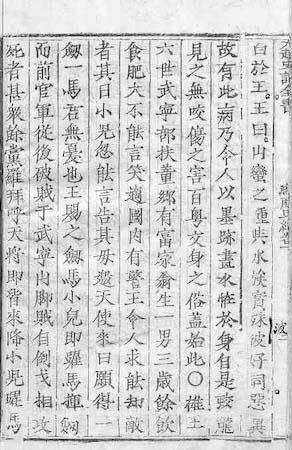 大越史記全書
白於王。王曰。山蠻之種與水族實殊彼好同惡異
故有此病乃令人以墨跡畫水怪於身自是蛟龍
見之無咬傷之害百粤文身之俗盖始此○雄王
六世武寧部扶董鄉有富家翁生一男三歲餘飲
食肥大不能言笑適國内有警王令人求能却敵
者其日小兒忽能言告其母邀天使來曰願得一
劍一馬君無憂也王賜之劍馬小兒即躍馬揮劍
而前官軍從後破賊于武寧山脚賊自倒戈相攻
死者甚衆餘党羅拜呼天將即皆來降小兒躍馬